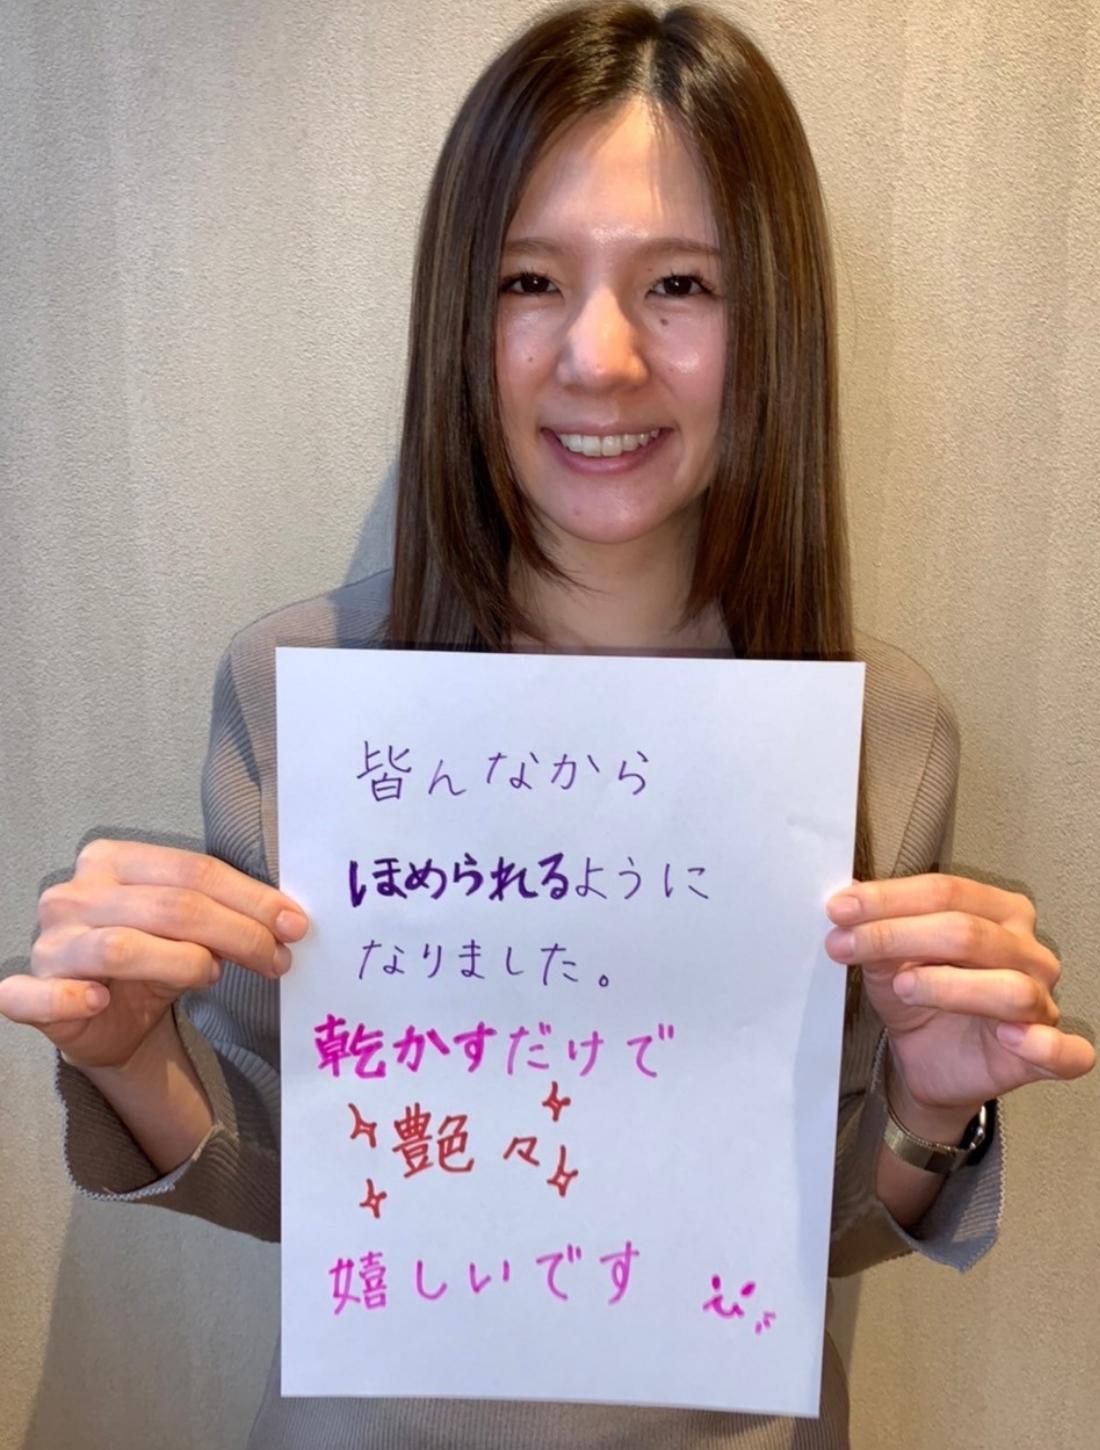 皆んなから
ほめられるように
なりました。
乾かすだけで
艶々
嬉しいです